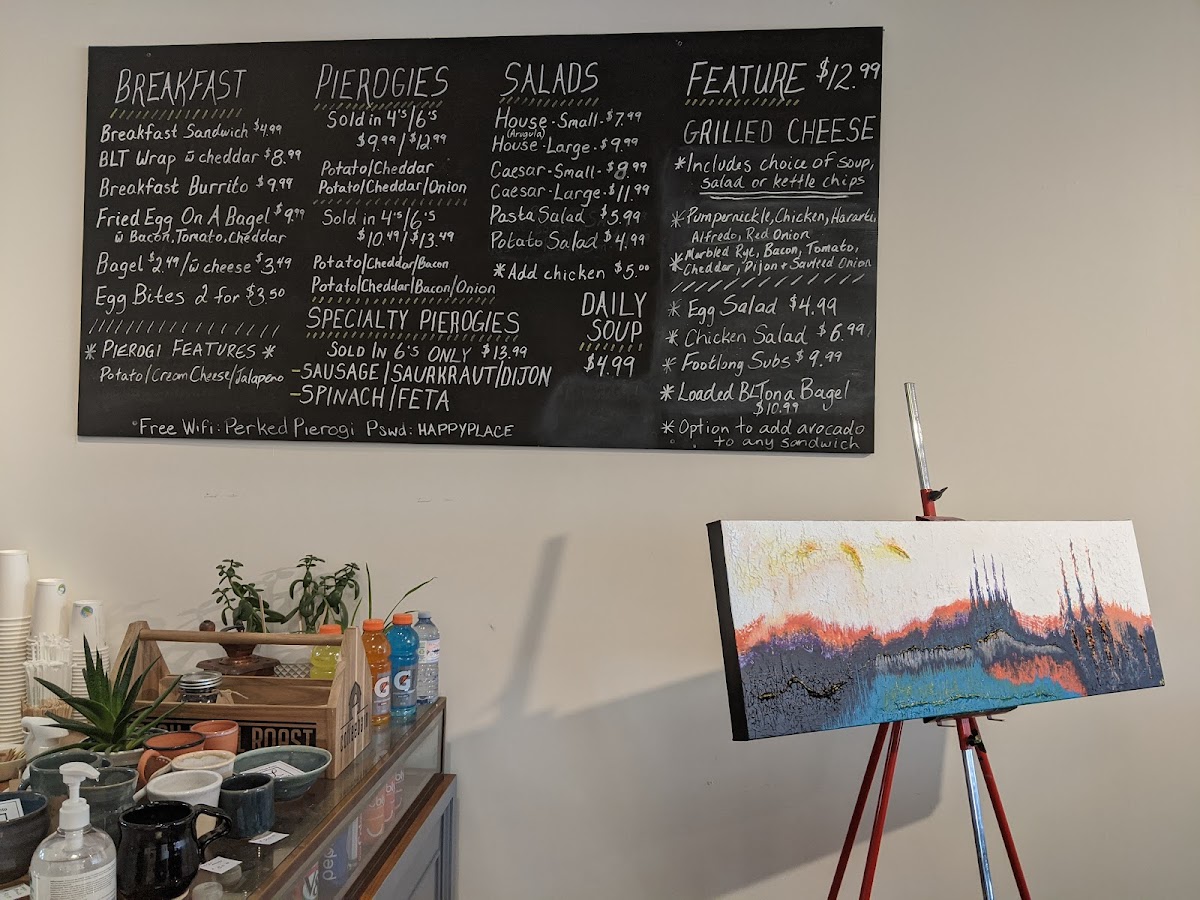 BREAKFAST
Breakfast Sandwich $4.99
BLT Wrap w̄ cheddar $8.99
Breakfast Burrito $9.99
Fried Egg On A Bagel $9.99
w̄ Bacon, Tomato, Cheddar
Bagel $2.49/w̄ cheese $3.49
Egg Bites 2 for $3.50
* PIEROGI FEATURES *
Potato/Cream Cheese/Jalapeno
PIEROGIES
Sold in 4's/6's
$9.99/$12.99
Potato/Cheddar
Potato/Cheddar/Onion
Sold in 4's/6's
$10.49/$13.49
Potato/Cheddar/Bacon
Potato/Cheddar/Bacon/Onion
SPECIALTY PIEROGIES
SOLD IN 6'S ONLY $13.99
-SAUSAGE/SAURKRAUT/DIJON
-SPINACH/FETA
SALADS
House-Small-$7.99
(Arugula)
House-Large-$9.99
Caesar-Small-$8.99
Caesar-Large-$11.99
Pasta Salad $5.99
Potato Salad $4.99
*Add chicken $5.00
DAILY
SOUP
$4.99
FEATURE $12.99
GRILLED CHEESE
*Includes choice of soup,
salad or kettle chips
*Pumpernickle, Chicken, Havarti,
Alfredo, Red Onion
*Marbled Rye, Bacon, Tomato,
Cheddar, Dijon + Sauteed Onion
* Egg Salad $4.99
* Chicken Salad $6.99
* Footlong Subs $9.99
* Loaded BLT on a Bagel
$10.99
* Option to add avocado
to any sandwich
Free Wifi: Perked Pierogi Pswd: HAPPYPLACE
G
G
ROAST